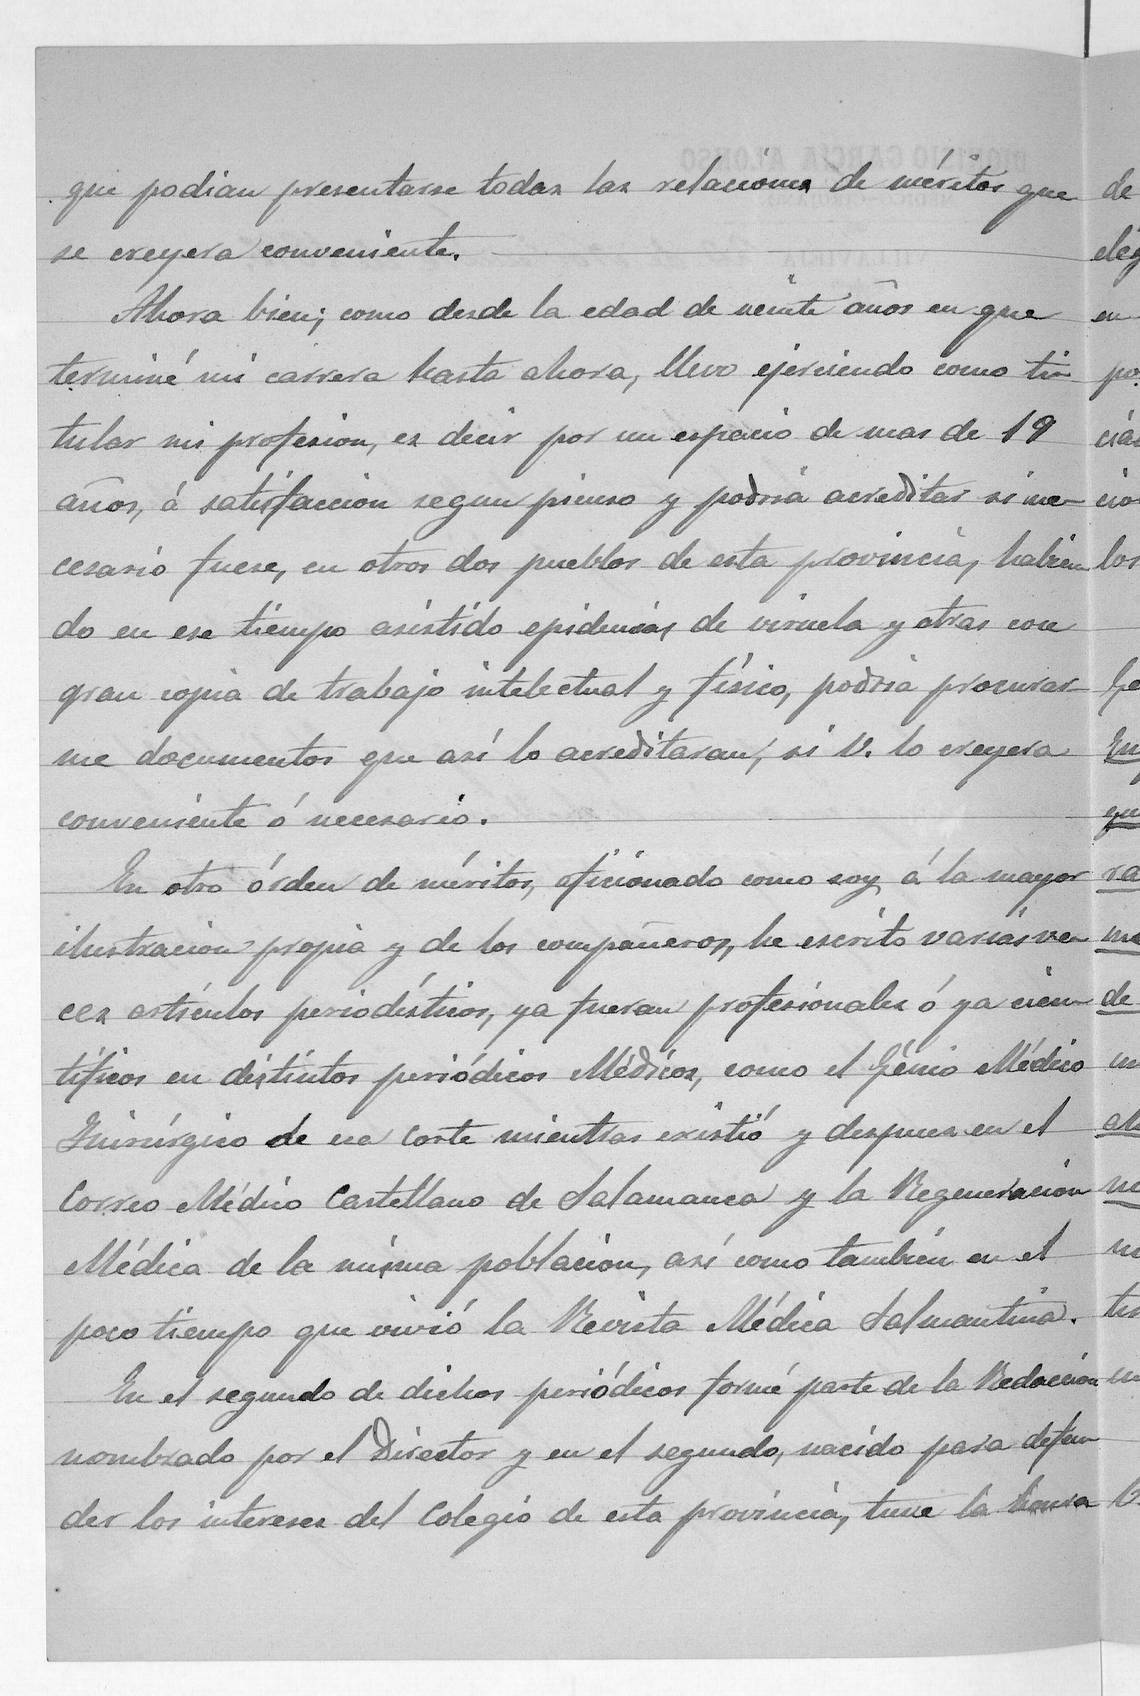 que podian presentarse todas las relaciones de méritos que
se creyera conveniente.
Ahora bien; como desde la edad de veinte años en que
terminé mi carrera hasta ahora, llevo ejerciendo como ti-
tular mi profesion, es decir por un espacio de mas de 19
años, á satisfaccion segun pienso y podria acreditar si ne-
cesario fuese, en otros dos pueblos de esta provincia, habien-
do en ese tiempo asistido epidemias de viruela y otras con
gran copia de trabajo intelectual y físico, podria procurar-
me documentos que así lo acreditaran, si V. lo creyera
conveniente ó necesario.
En otro órden de méritos, aficionado como soy á la mayor
ilustracion propia y de los compañeros, he escrito varias ve-
ces artículos periodísticos, ya fueran profesionales ó ya cien-
tíficos en distintos periódicos Médicos, como el Génio Médico
Quirúrgico de esa corte mientras existió y despues en el
Correo Médico Castellano de Salamanca y la Regeneracion
Médica de la misma poblacion, así como tambien en el
poco tiempo que vivió la Revista Médica Salmantina.
En el segundo de dichos periódicos formé parte de la Redaccion
nombrado por el Director y en el segundo, nacido para defen-
der los intereses del Colegio de esta provincia, tuve la honra
DIONISIO GARCÍA ALONSO
MÉDICO-CIRUJANO
VILLAVIEJA